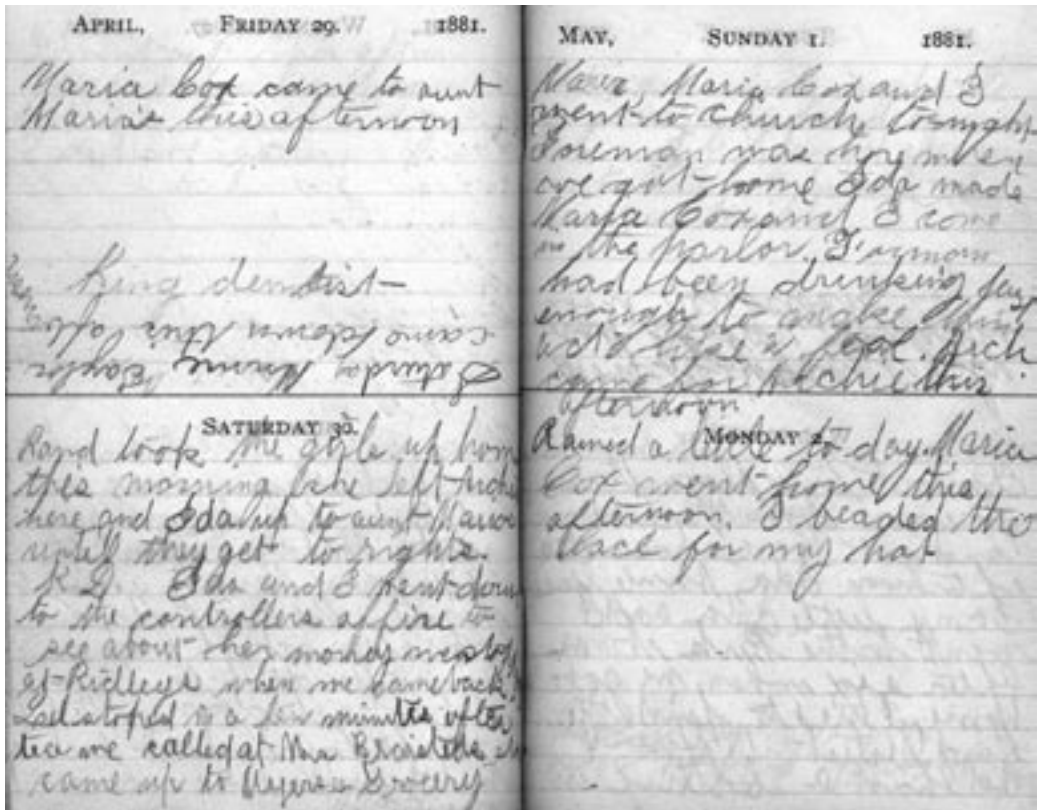 APRIL, FRIDAY 29. 1881.
Maria Cox came to aunt
Maria's this afternoon
King dentist
came down this
Saturday
SATURDAY 30.
Rand took the girls up home
this morning he left
here and Ida up to aunt
until they get to rights.
Ida and I went down
to the controllers office to
see about her money
at Ridleys when we came back
stoped in a few minutes after
tea we called at Mrs
came up to Grocery
MAY, SUNDAY 1. 1881.
Maria Cox and I
went to church tonight
Foreman was here when
we got home Ida made
Maria Cox and I come
in the parlor.
had been drinking just
enough to make him
act like a fool.
came for Archie this
afternoon
MONDAY 2.
Rained a little to day. Maria
Cox went home this
afternoon. I beaded the
lace for my hat